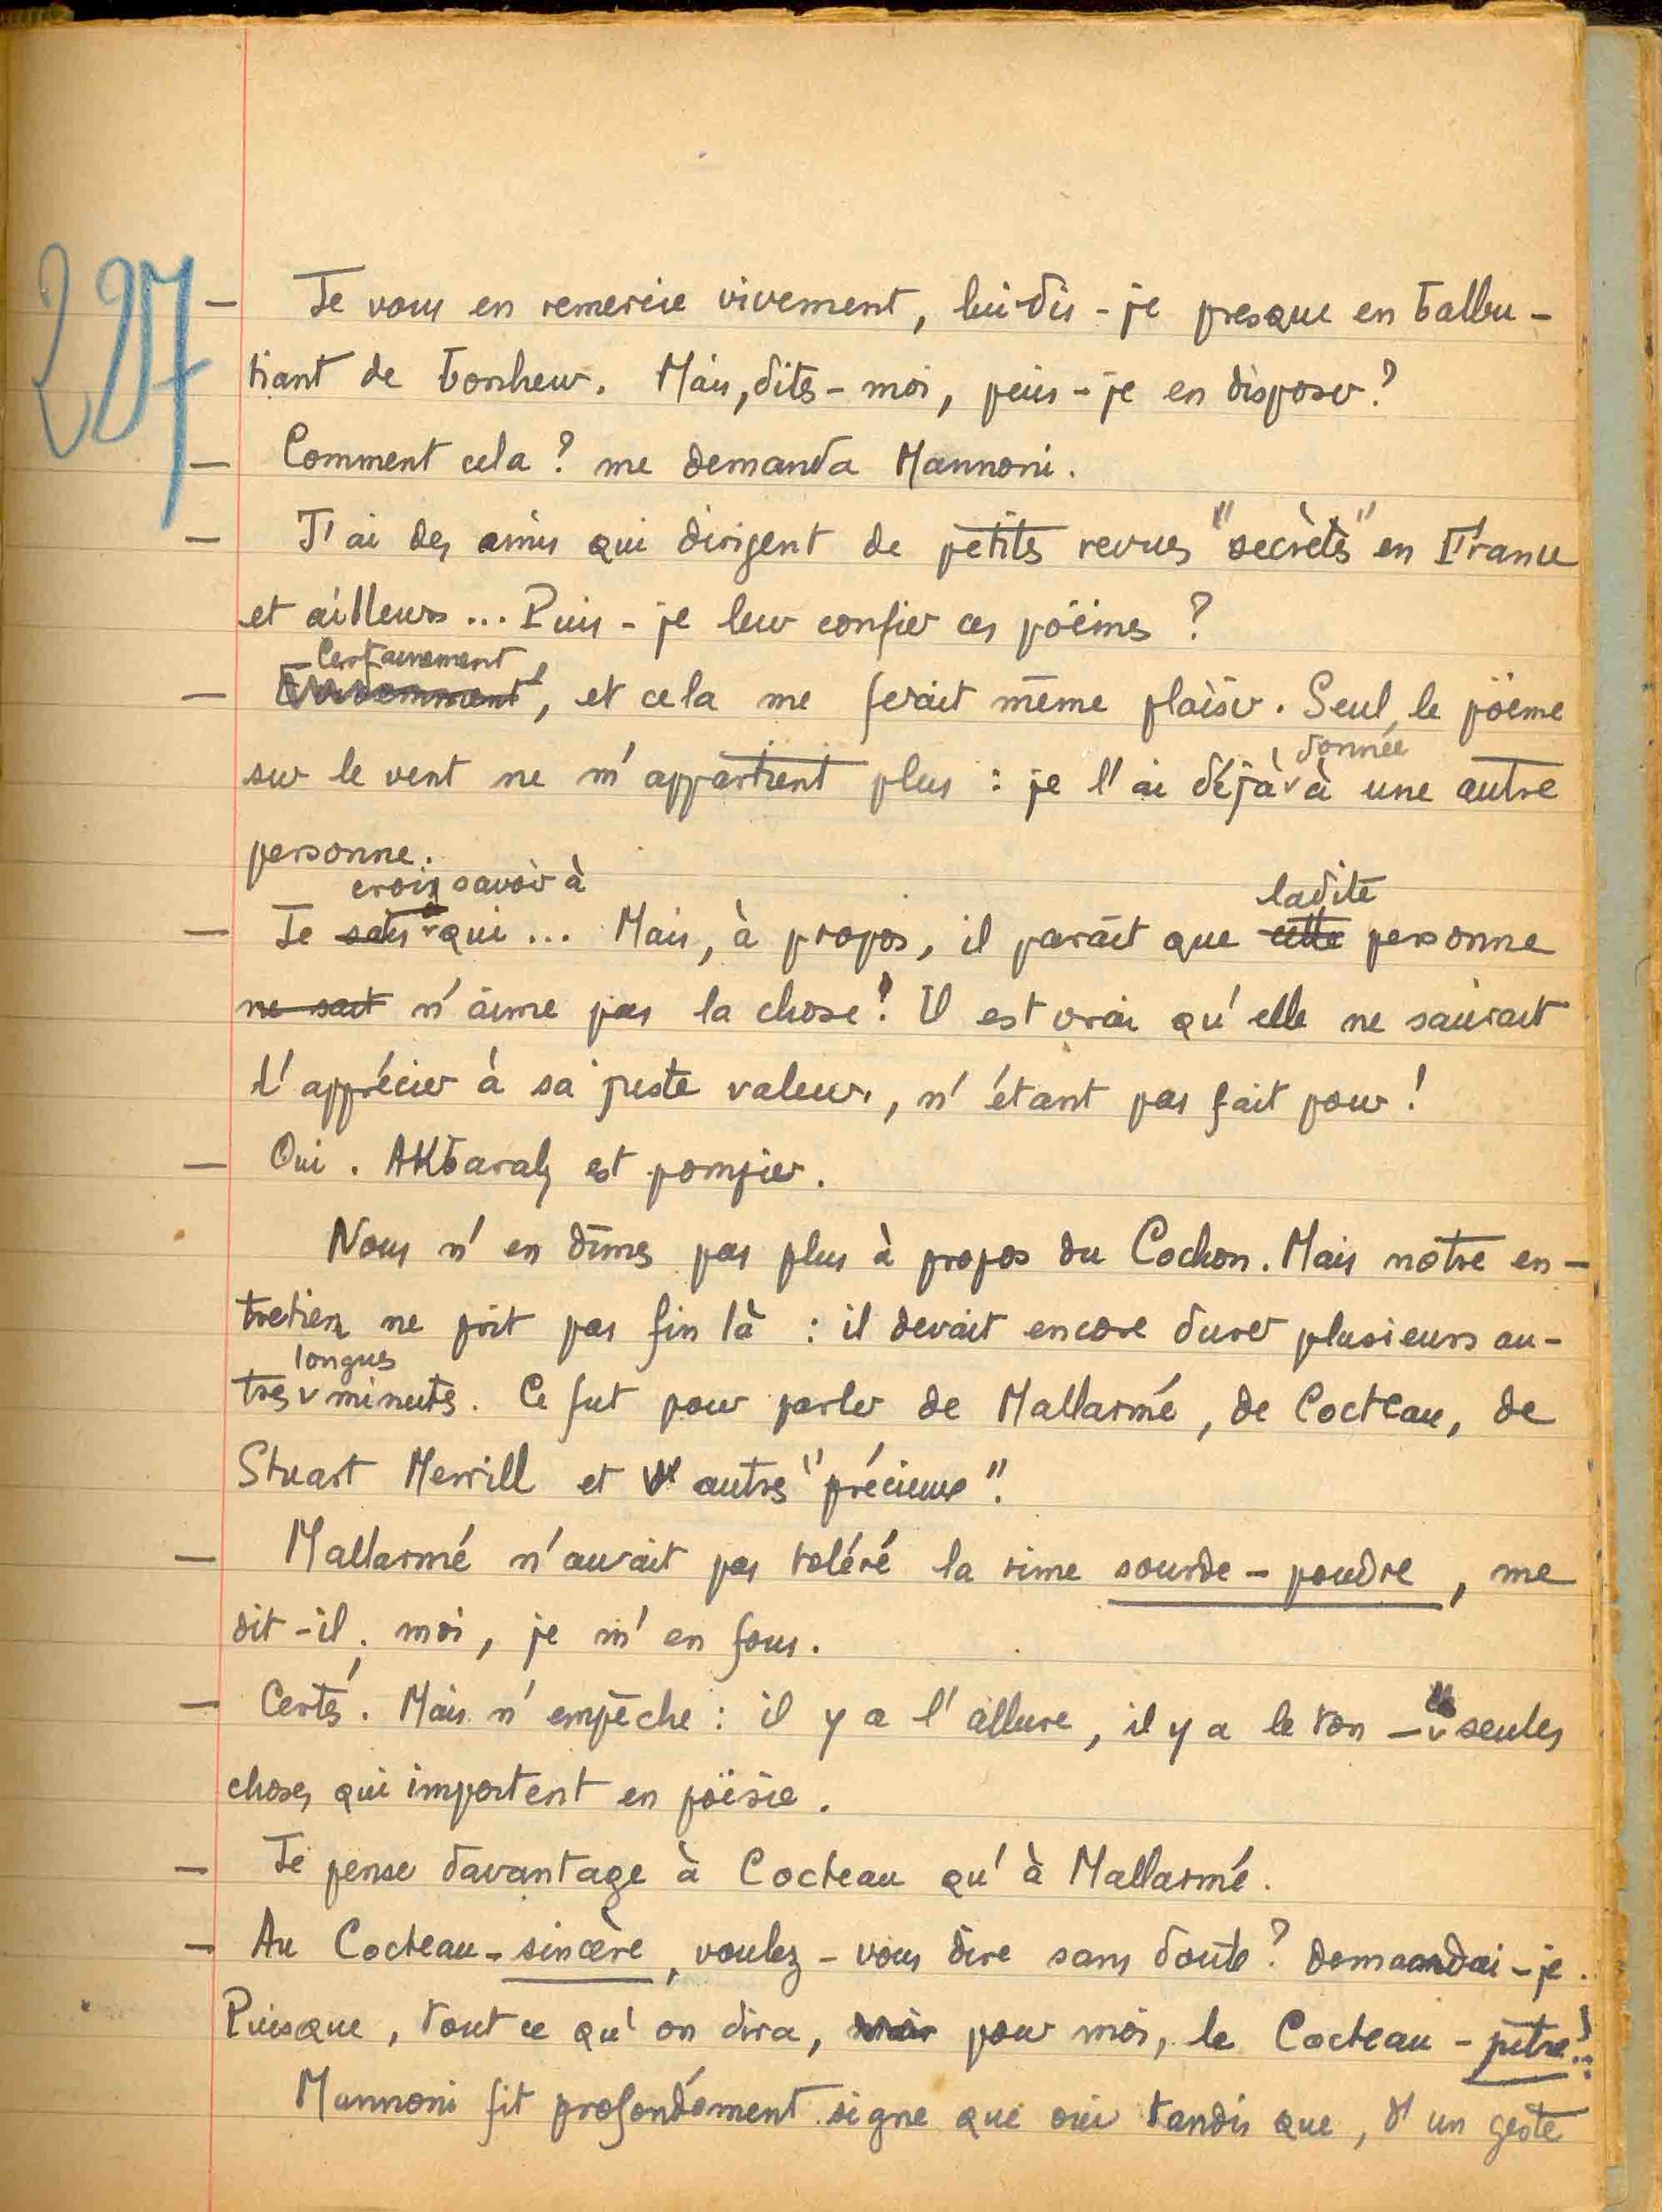 227
— Je vous en remercie vivement, lui dis-je presque en balbu-
tiant de bonheur. Mais, dites-moi, puis-je en disposer?
— Comment cela? me demanda Mannoni.
— J'ai des amis qui dirigent de petites revues "secrètes" en France
et ailleurs... Puis-je leur confier ces poèmes?
Certainement
—, et cela me ferait même plaisir. Seul, le poème
donnée
sur le vent ne m'appartient plus : je l'ai déjà à une autre
personne.
crois savoir à
ladite
— Je sais qui... Mais, à propos, il paraît que cette personne
ne sait n'aime pas la chose! Il est vrai qu'elle ne saurait
l'apprécier à sa juste valeur, n'étant pas fait pour!
— Oui. Akbaraly est pompier.
Nous n'en dîmes pas plus à propos du Cochon. Mais notre en-
tretien ne prit pas fin là : il devait encore durer plusieurs au-
longues
tres minutes. Ce fut pour parler de Mallarmé, de Cocteau, de
Stuart Merrill et autres "précieux".
— Mallarmé n'aurait pas toléré la rime sourde-poudre, me
dit-il; moi, je m'en fous.
— Certes. Mais n'empêche : il y a l'allure, il y a le ton — seules
choses qui importent en poësie.
— Je pense davantage à Cocteau qu'à Mallarmé.
— Au Cocteau-sincère, voulez-vous dire sans doute? demandai-je.
Puisque, tout ce qu'on dira, pour moi, le Cocteau-pitre!..
Mannoni fit profondément signe que oui tandis que, d'un geste